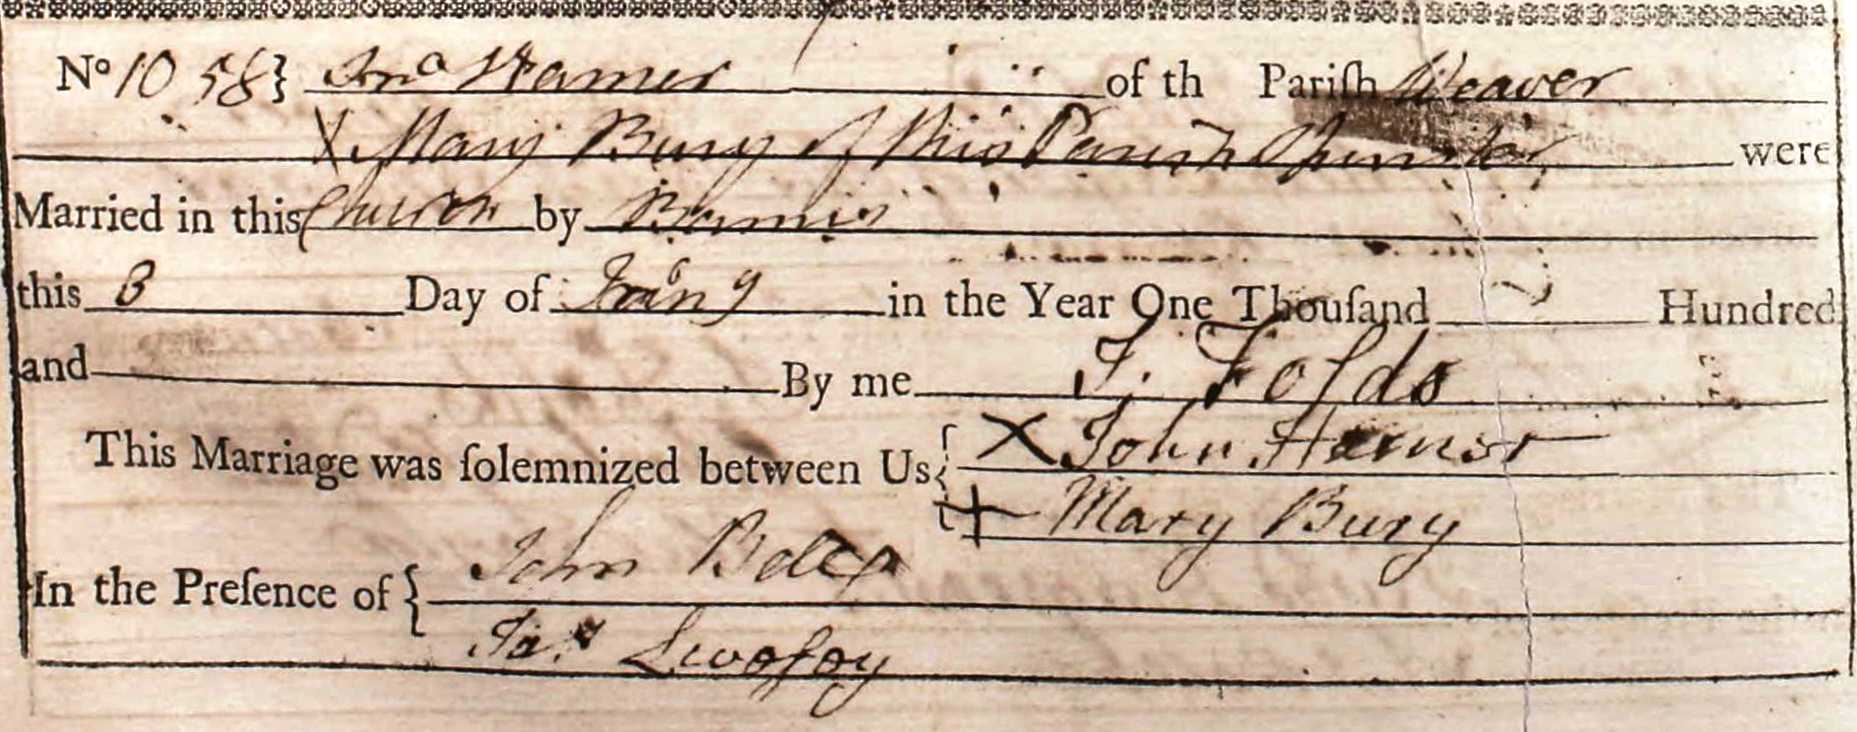 No 1058} Jno Hamer of th Pariſh Weaver
X Mary Bury of this Parish Spinster were
Married in this Church by Banns
this 3 Day of Jany in the Year One Thouſand Hundred
and By me J. Folds
This Marriage was ſolemnized between Us { X John Hamer
+ Mary Bury
In the Preſence of { John
Jas